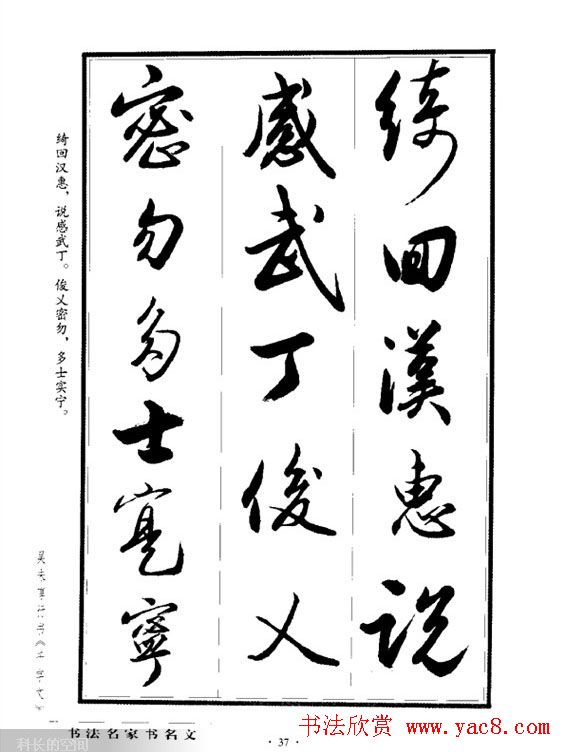 綺回漢惠說
感武丁俊乂
密勿多士寔寧
绮回汉惠，说感武丁。俊乂密勿，多士实宁。
吴未淳行书《千字文》
书法名家书名文
科长的空间
· 37 ·
书法欣赏 www.yac8.com